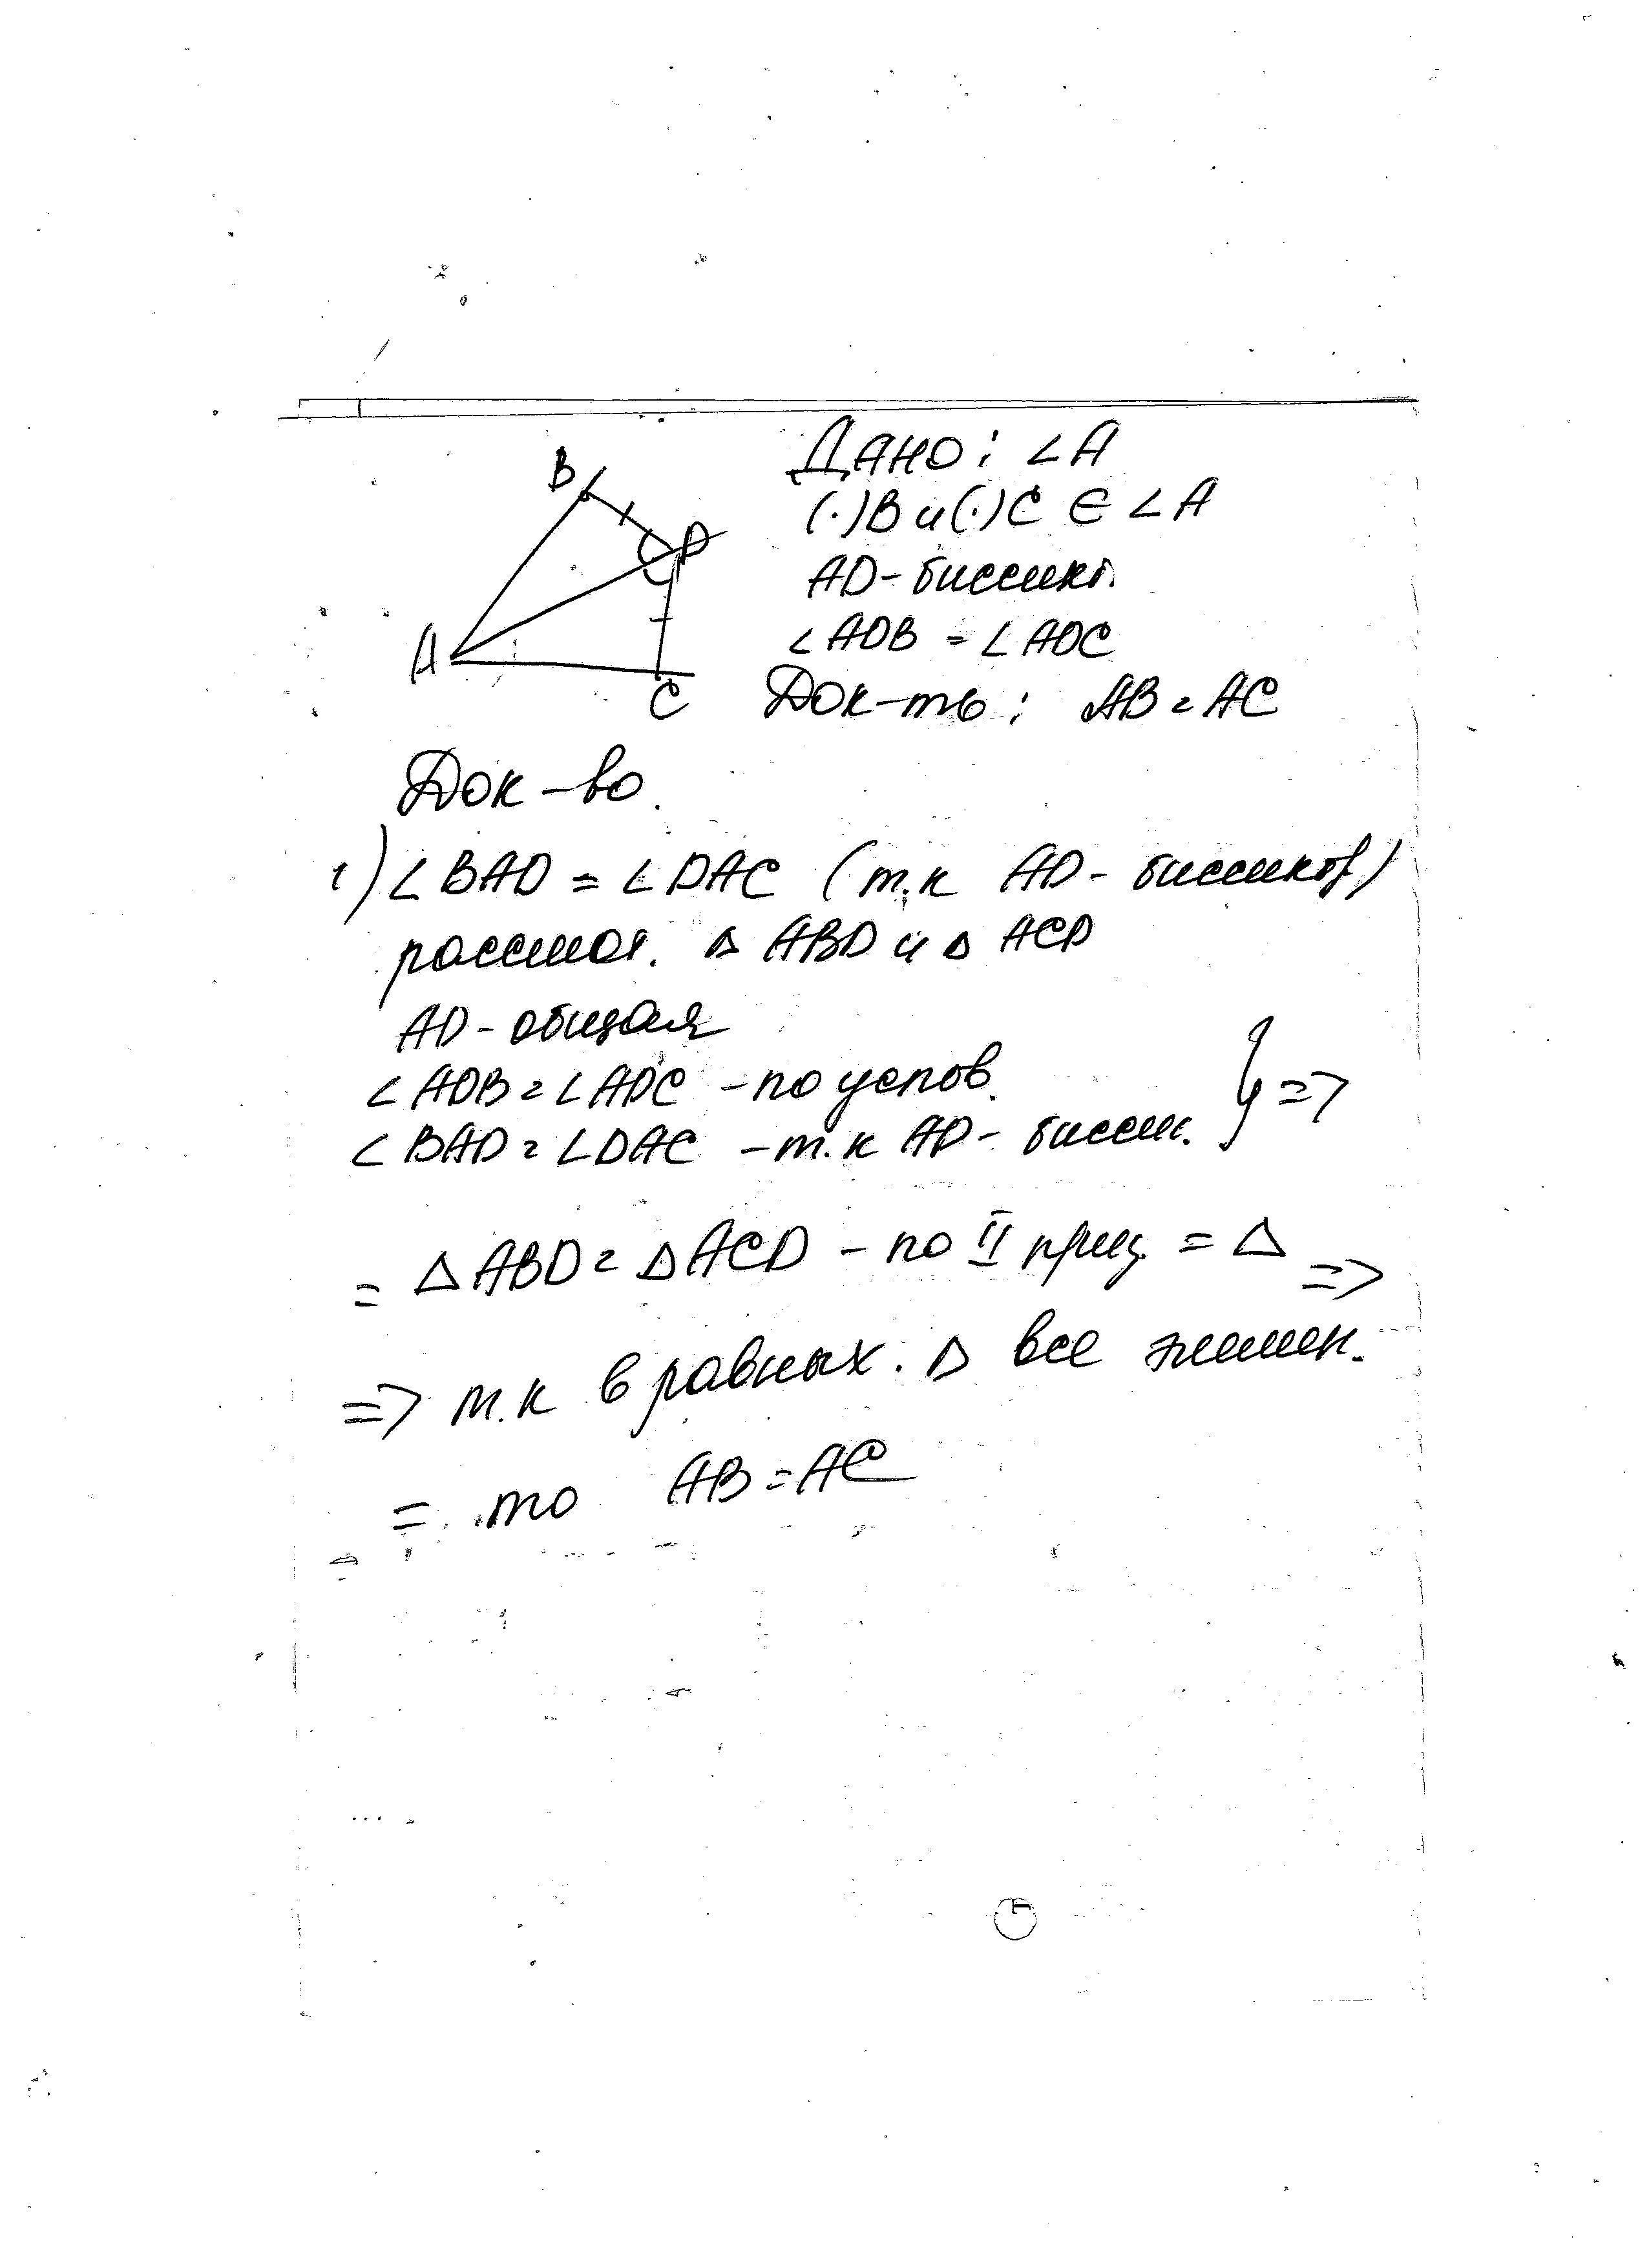 B
D
A
C
Дано: ∠A
(·)B и (·)C ∈ ∠A
AD - биссект.
∠ADB = ∠ADC
Док-ть: AB = AC
Док-во.
1) ∠BAD = ∠DAC (т.к AD - биссектр)
рассмот. △ ABD и △ ACD
AD - общая
∠ADB = ∠ADC - по услов.
∠BAD = ∠DAC - т.к AD - биссек. } =>
= △ABD = △ACD - по II призн = △ =>
=> т.к в равных. △ все элемен.
= то AB = AC